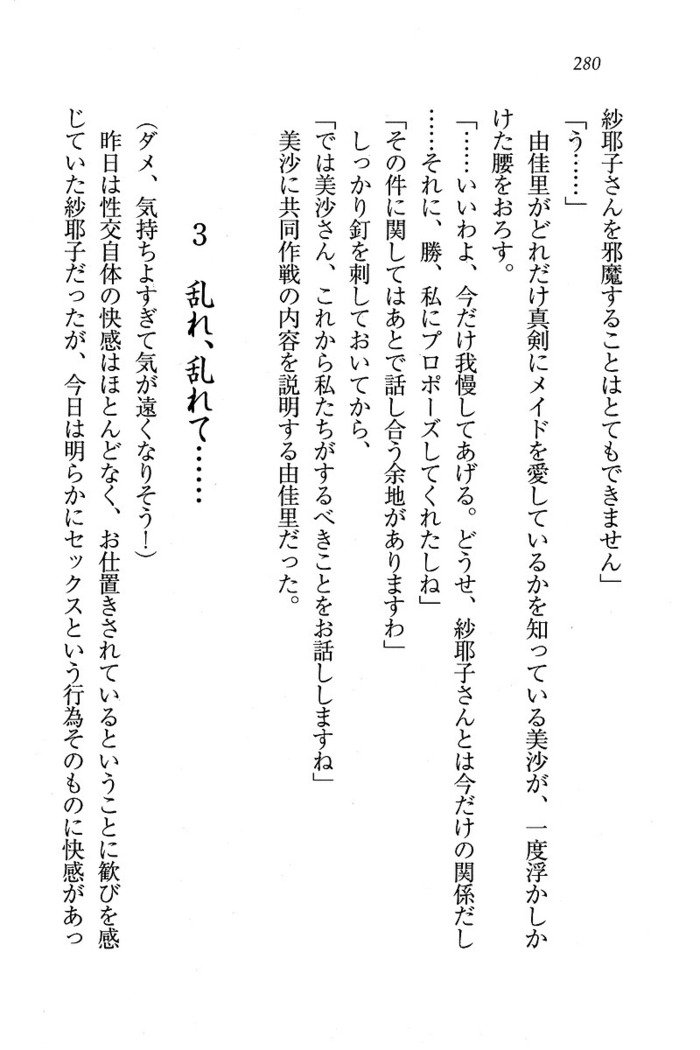 280
紗耶子さんを邪魔することはとてもできません」
「う……」
　由佳里がどれだけ真剣にメイドを愛しているかを知っている美沙が、一度浮かしか
けた腰をおろす。
「……いいわよ、今だけ我慢してあげる。どうせ、紗耶子さんとは今だけの関係だし
……それに、勝、私にプロポーズしてくれたしね」
「その件に関してはあとで話し合う余地がありますわ」
　しっかり釘を刺しておいてから、
「では美沙さん、これから私たちがするべきことをお話ししますね」
　美沙に共同作戦の内容を説明する由佳里だった。
3　乱れ、乱れて……
（ダメ、気持ちよすぎて気が遠くなりそう！）
　昨日は性交自体の快感はほとんどなく、お仕置きされているということに歓びを感
じていた紗耶子だったが、今日は明らかにセックスという行為そのものに快感があっ